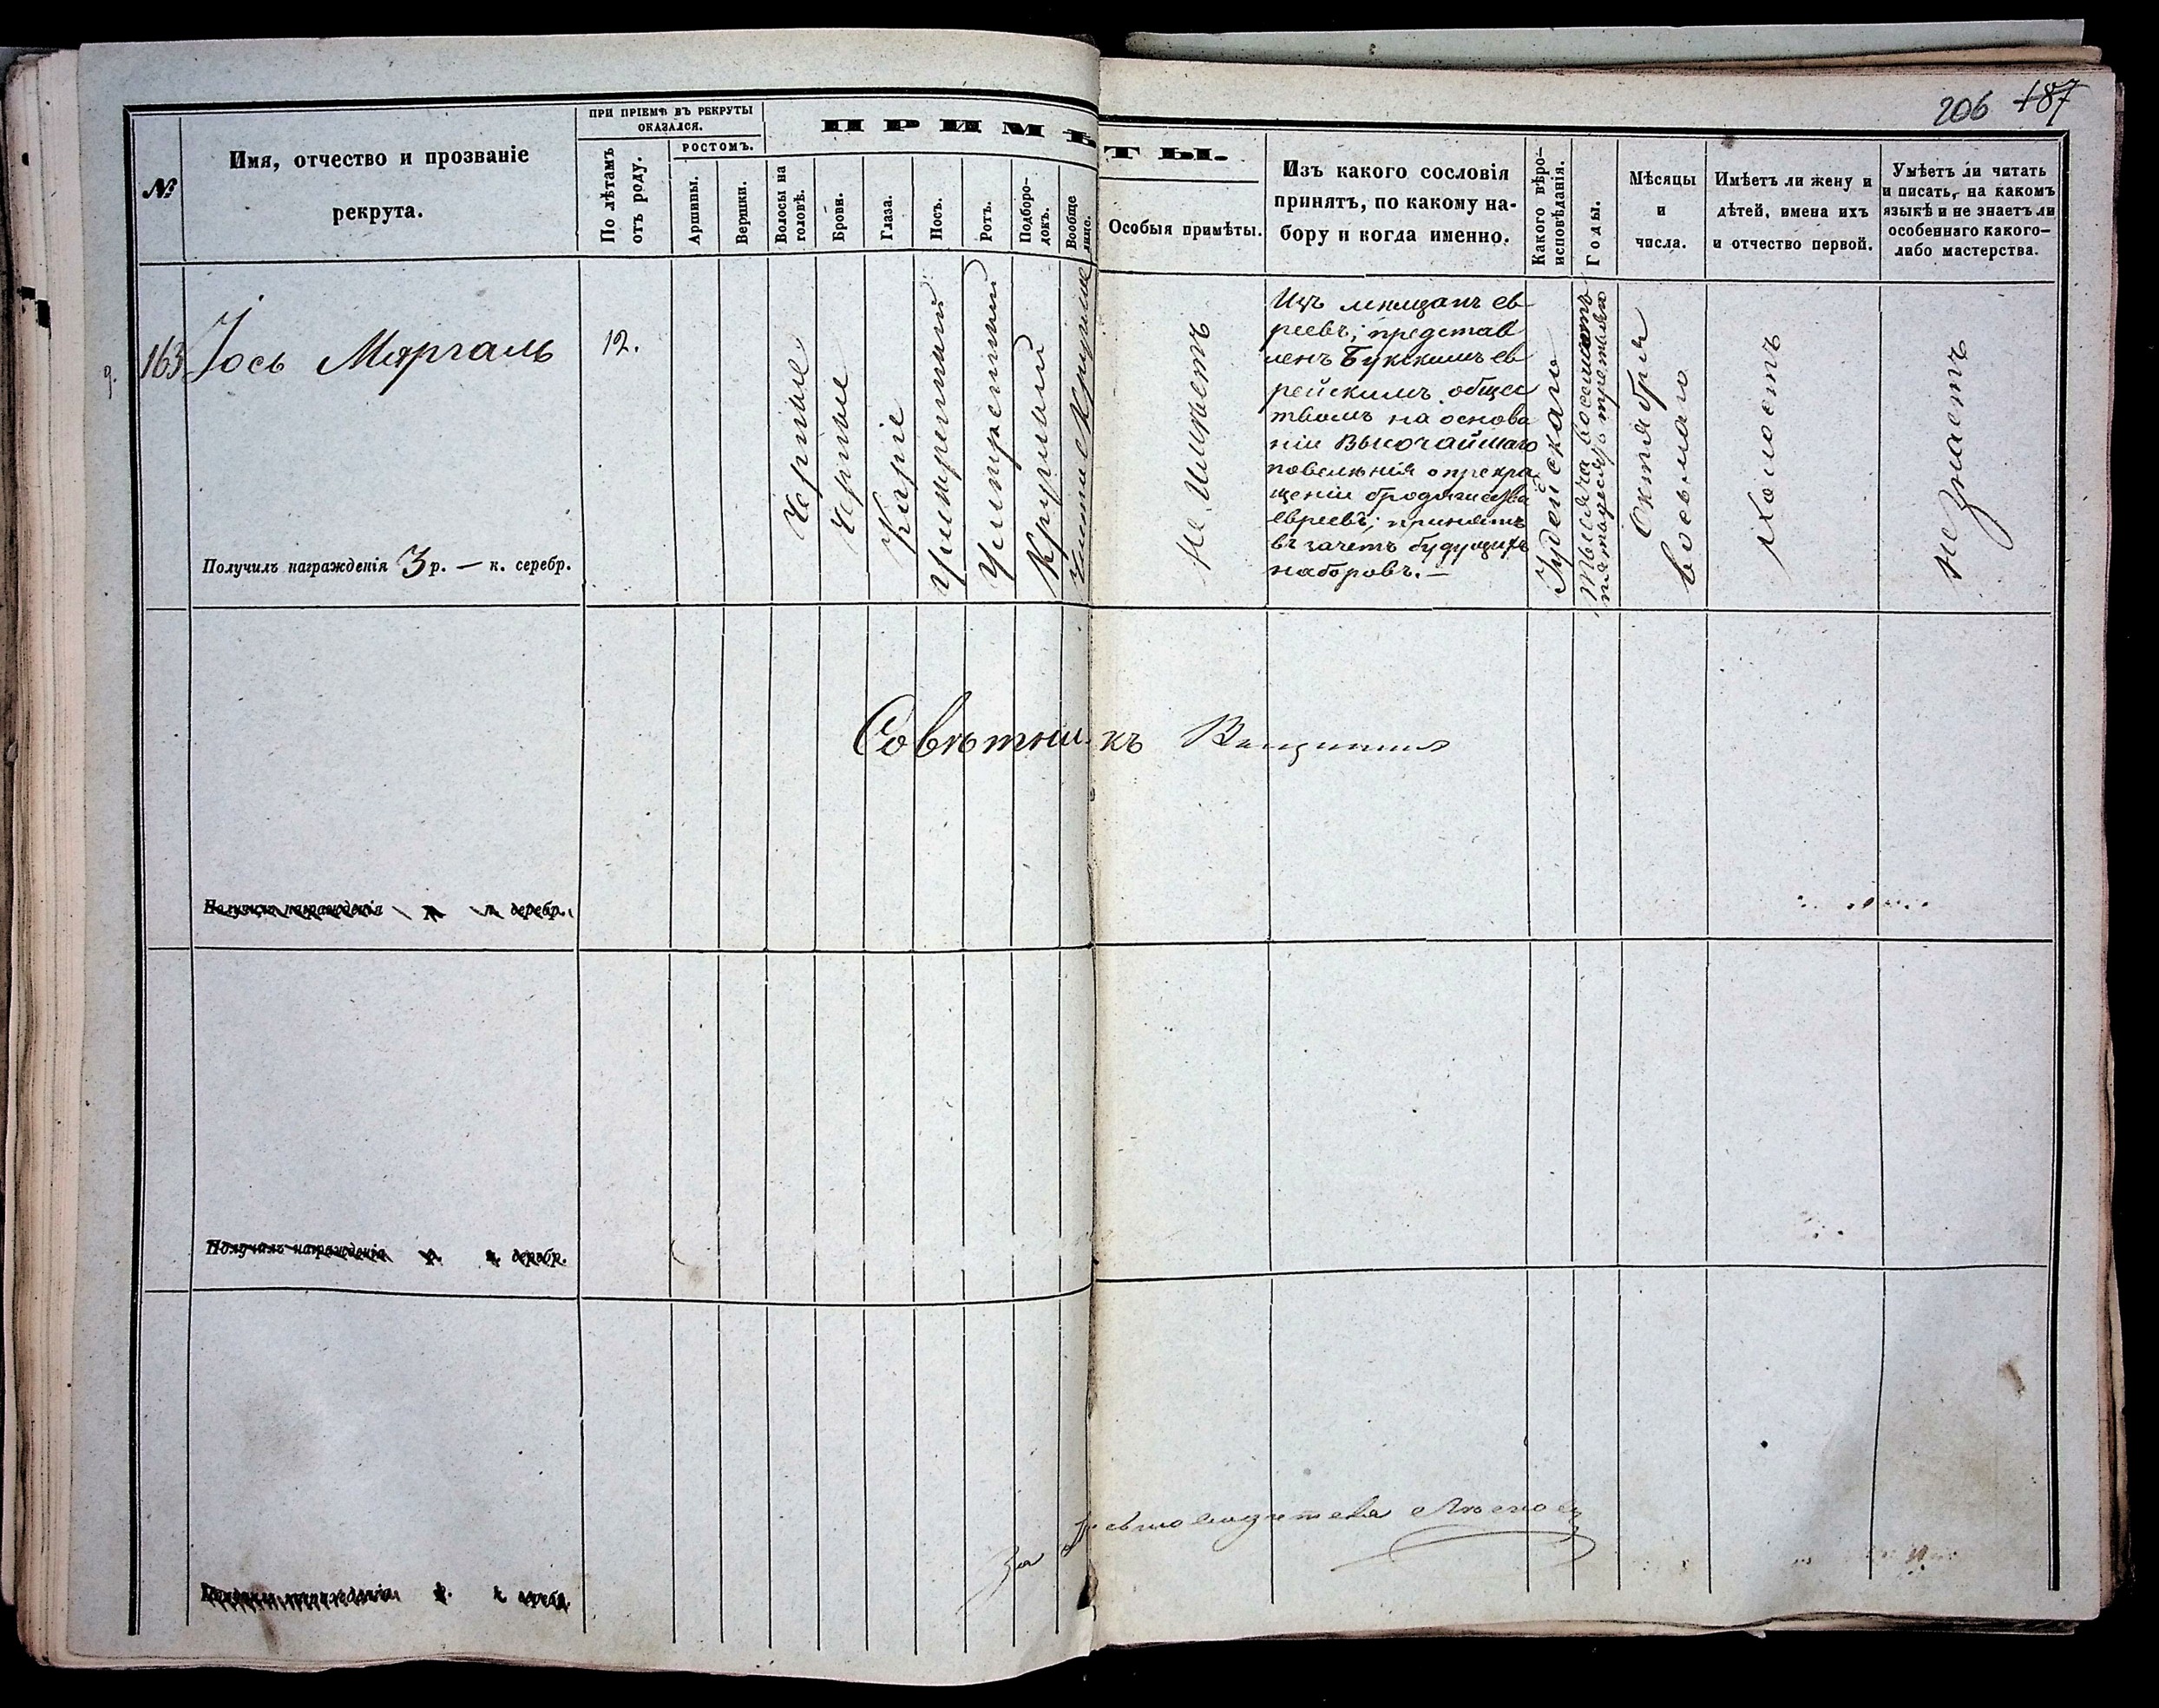 206 187
ПРИМѢТЫ.
№
Имя, отчество и прозваніе
рекрута.
ПРИ ПРІЕМѢ ВЪ РЕКРУТЫ
ОКАЗАЛСЯ.
По лѣтамъ
отъ роду.
РОСТОМЪ.
Аршины.
Вершки.
Волосы на
головѣ.
Брови.
Глаза.
Носъ.
Ротъ.
Подборо-
докъ.
Вообще
лицо.
Особыя примѣты.
Изъ какого сословія
принятъ, по какому на-
бору и когда именно.
Какого вѣро-
исповѣданія.
Годы.
Мѣсяцы
и
числа.
Имѣетъ ли жену и
дѣтей, имена ихъ
и отчество первой.
Умѣетъ ли читать
и писать, на какомъ
языкѣ и не знаетъ ли
особеннаго какого-
либо мастерства.
163
Іось Маргаль
12.
Черные
Черные
Каріе
Умѣренный
Умѣренный
Круглый
Чистое Круглое
Не имѣетъ
Изъ мѣщанъ ев
реевъ; представ
ленъ Букскимъ ев
рейскимъ общес
твомъ на основа
ніи Высочайшаго
повелѣнія о прекра
щеніи бродяжества
евреевъ; принятъ
въ зачетъ будущихъ
наборовъ.—
Іудейскаго
Тысяча восемьсотъ
пятьдесятъ третьяго
Октября
восьмаго
Холостъ
не знаетъ
Получилъ награжденія 3 р. — к. серебр.
Совѣтникъ
Получилъ награжденія р. к. серебр.
Получилъ награжденія р. к. серебр.
За
Получилъ награжденія р. к. серебр.